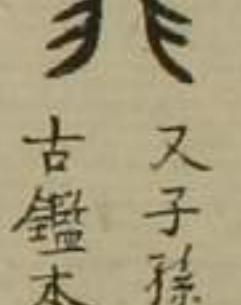 又子孫
古鑑本